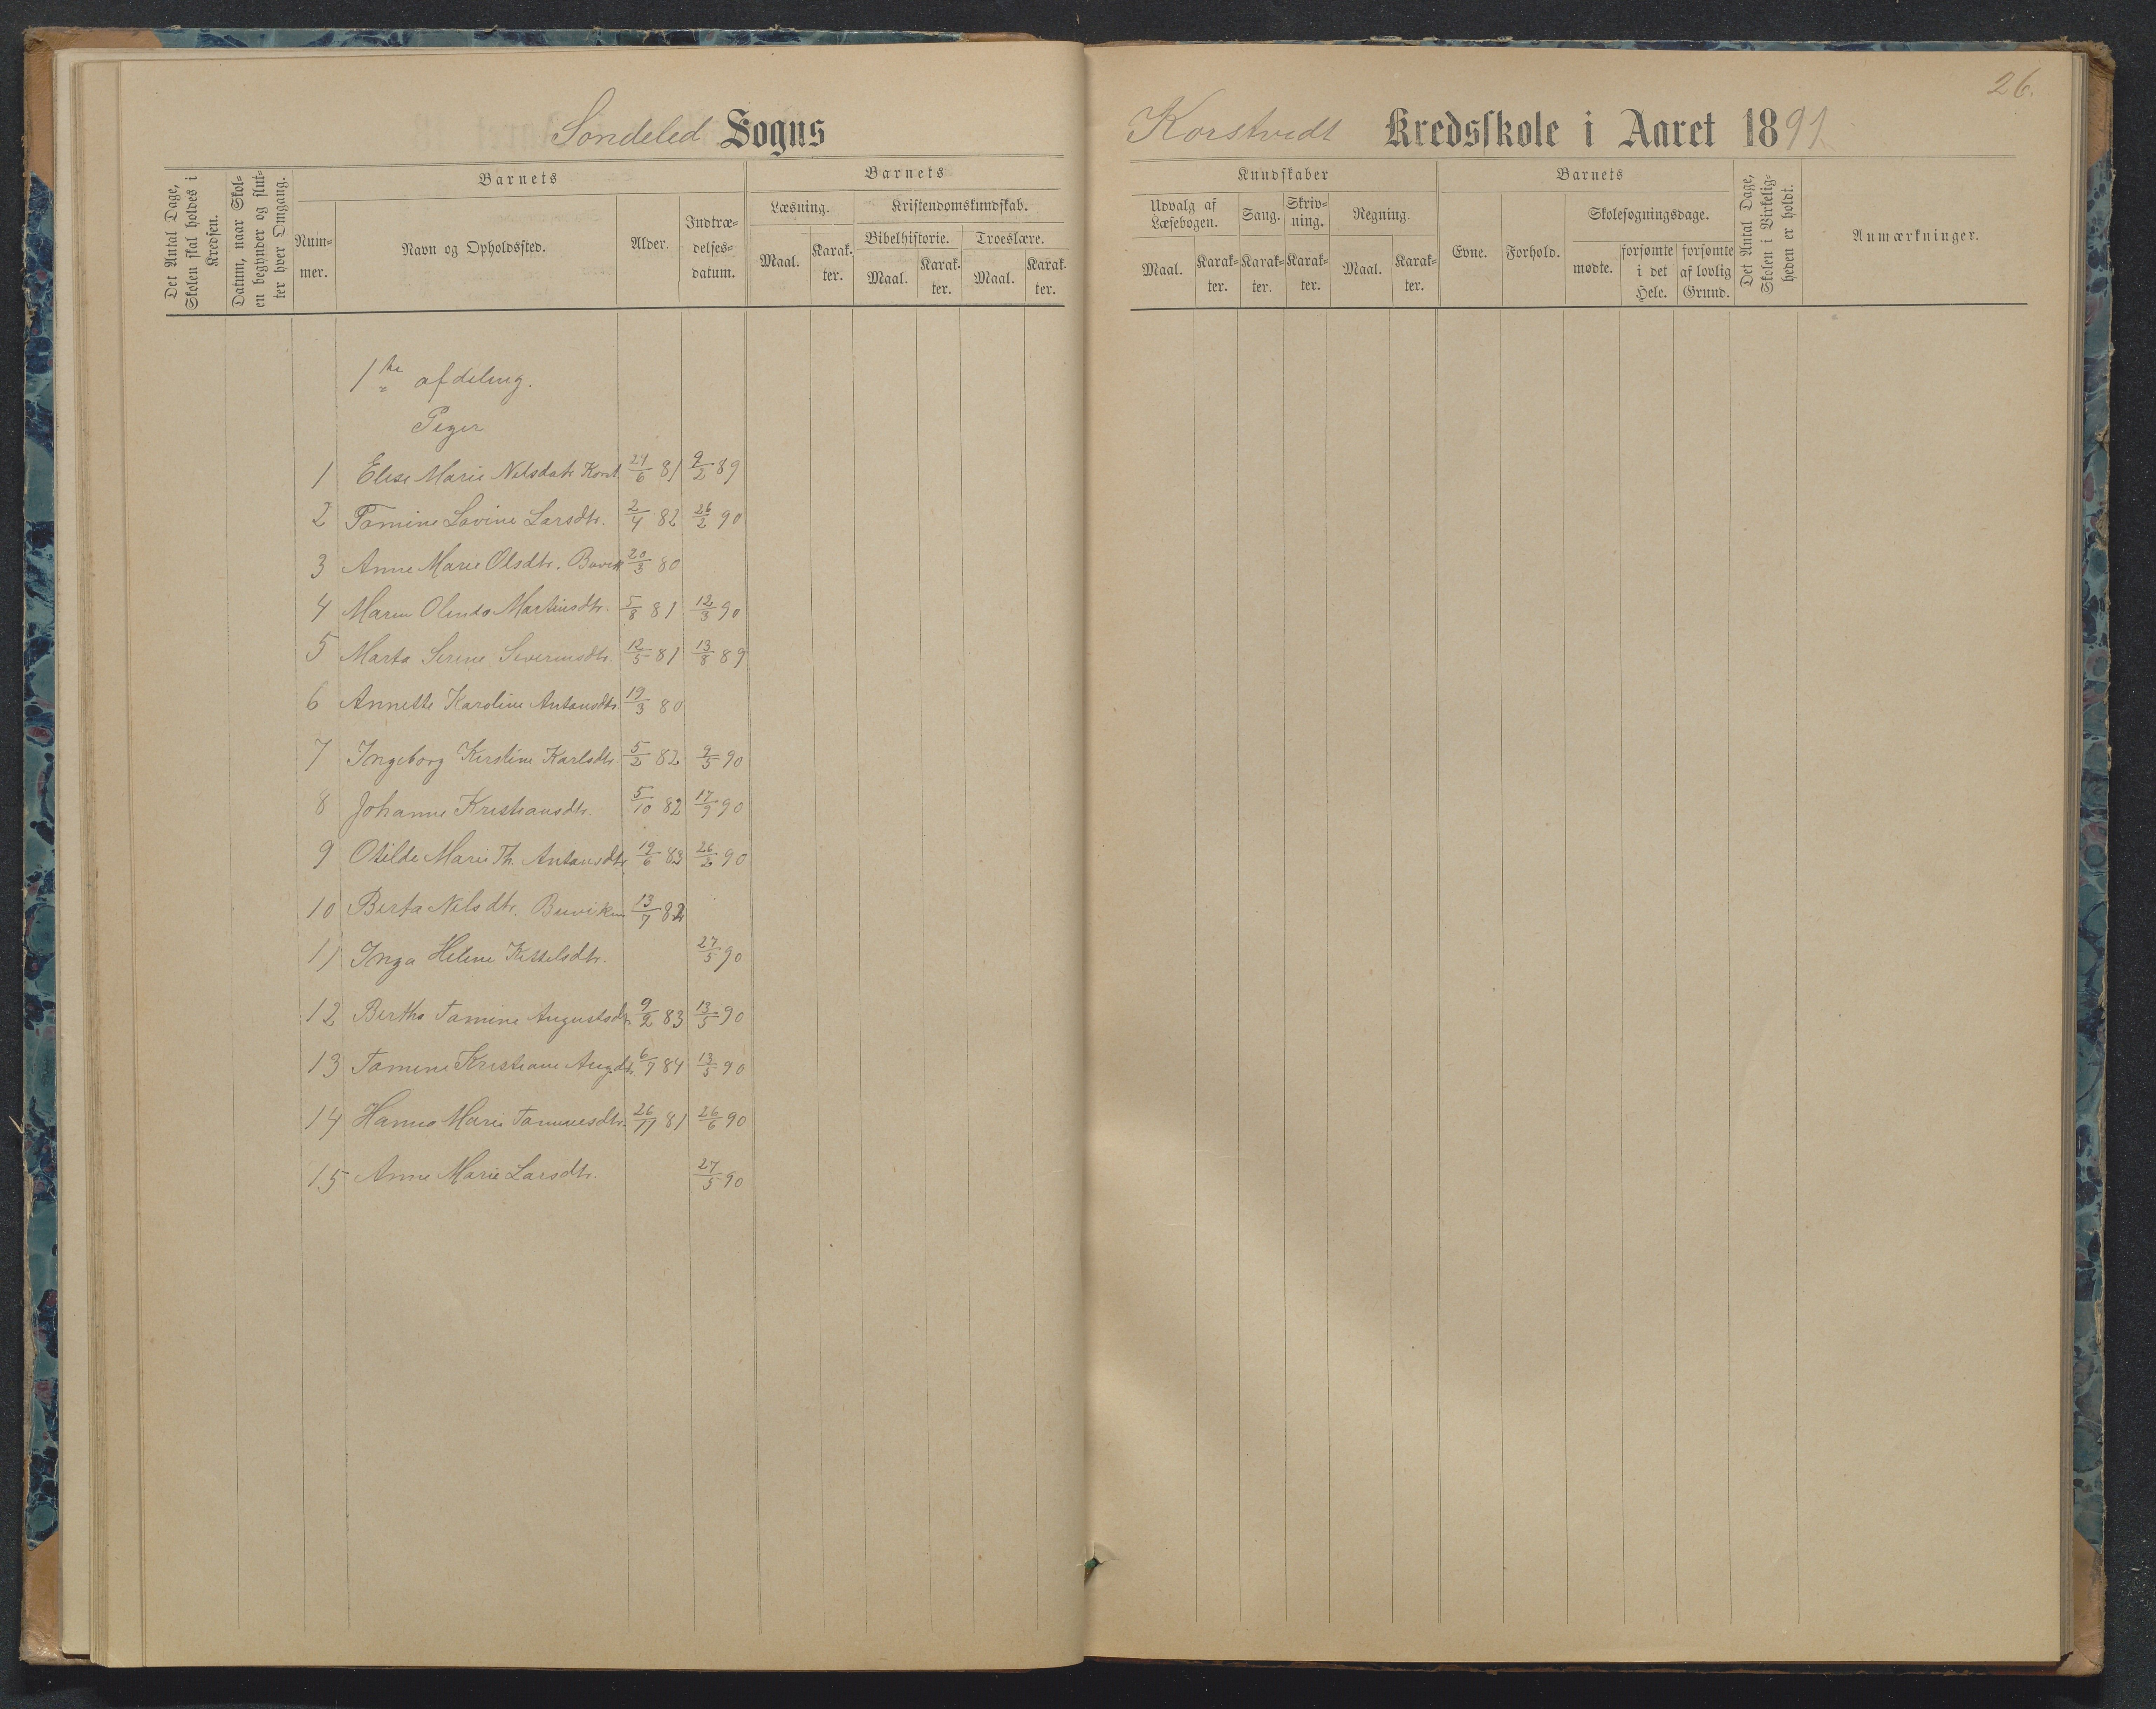 26.
Sondeled Sogns
Korstvedt Kredsskole i Aaret 1891
Det Antal Dage, Skolen skal holdes i Kredsen.
Datum, naar Skolen begynder og slutter hver Omgang.
Barnets
Nummer.
Navn og Opholdssted.
Alder.
Indtrædelsesdatum.
Barnets
Læsning.
Maal.
Karakter.
Kristendomskundskab.
Bibelhistorie.
Maal.
Karakter.
Troeslære.
Maal.
Karakter.
Kundskaber
Udvalg af Læsebogen.
Maal.
Karakter.
Sang.
Karakter.
Skrivning.
Karakter.
Regning.
Maal.
Karakter.
Barnets
Evne.
Forhold.
Skolesøgningsdage.
mødte.
forsømte i det Hele.
forsømte af lovlig Grund.
Det Antal Dage, Skolen i Virkeligheden er holdt.
Anmærkninger.
1ste afdeling.
Piger
1 Elise Marie Nilsdatr Korst. 24/6 81 9/2 89
2 Tomine Lovine Larsdtr. 2/4 82 26/2 90
3 Anne Marie Olsdtr. 20/3 80
4 Maren Olinda Martinsdtr. 5/8 81 12/3 90
5 Marta Serine Severinsdtr. 12/5 81 13/8 89
6 Annette Karoline Antonsdtr. 19/3 80
7 Ingeborg Kirstine Karlsdtr. 5/2 82 9/5 90
8 Johanne Kristiansdtr. 5/10 82 17/9 90
9 Otilde Marie Th. Antonsdtr. 19/6 83 26/2 90
10 Berta Nilsdtr. Buviken 13/7 82
11 Inga Helene Kittelsdtr. 27/5 90
12 Bertha Tomine Augustsdtr. 9/2 83 13/5 90
13 Tomine Kristiane Augdtr. 6/7 84 13/5 90
14 Hanna Marie Tommesdtr. 26/11 81 26/6 90
15 Anne Marie Larsdtr. 27/5 90